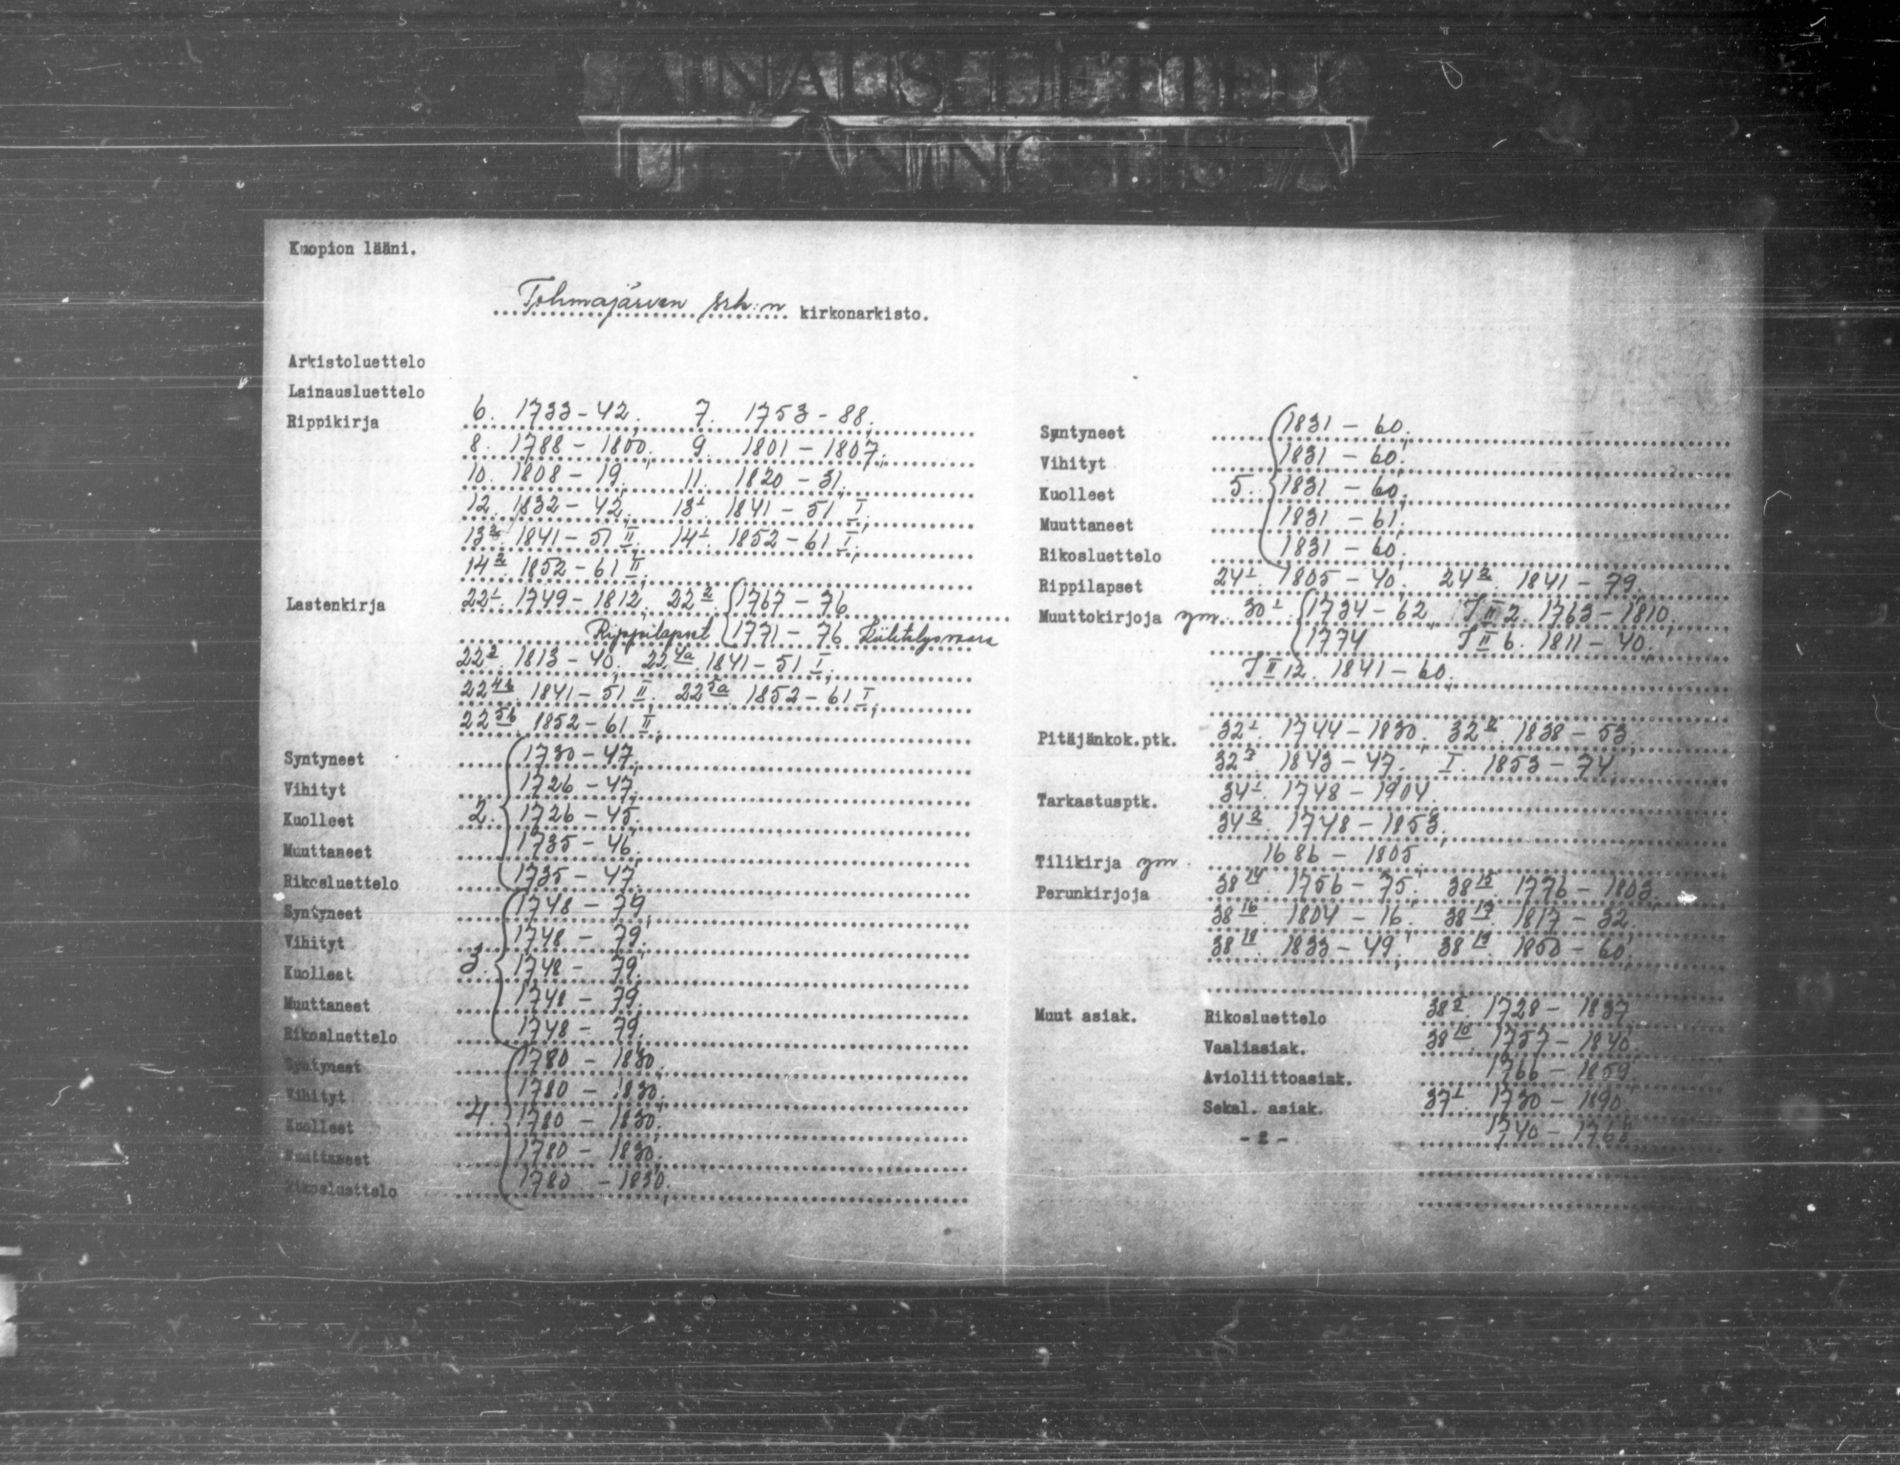 Kuopion lääni.
Tohmajärven srk:n kirkonarkisto.
Arkistoluettelo
Lainausluettelo
Rippikirja 6. 1733-42, 7. 1753-88,
8. 1788-1800, 9. 1801-1807,
10. 1808-19, 11. 1820-31,
12. 1832-42, 13¹. 1841-51 I,
13². 1841-51 II, 14¹. 1852-61 I,
14². 1852-61 II,
Lastenkirja 22¹. 1749-1812, 22². 1767-76
Rippilapset 1771-76 Kiihtelysvaara
22³. 1813-40, 22⁴ᵃ. 1841-51 I,
22⁴ᵇ. 1841-51 II, 22⁵ᵃ. 1852-61 I,
22⁵ᵇ. 1852-61 II,
Syntyneet 1730-47,
Vihityt 1726-47,
Kuolleet 2. 1726-45,
Muuttaneet 1735-46,
Rikosluettelo 1735-47,
Syntyneet 1748-79,
Vihityt 1748-79,
Kuolleet 3. 1748-79,
Muuttaneet 1748-79,
Rikosluettelo 1748-79,
Syntyneet 1780-1830,
Vihityt 1780-1830,
Kuolleet 4. 1780-1830,
Muuttaneet 1780-1830,
Rikosluettelo 1780-1830,
Syntyneet 1831-60,
Vihityt 1831-60,
Kuolleet 5. 1831-60,
Muuttaneet 1831-61,
Rikosluettelo 1831-60,
Rippilapset 24¹. 1805-40, 24². 1841-79,
Muuttokirjoja ym. 30¹ 1734-62, I II 2. 1763-1810,
1774 I II 6. 1811-40,
I II 12. 1841-60,
Pitäjänkok.ptk. 32¹. 1744-1830, 32². 1838-53,
32³. 1843-47, I. 1853-74,
Tarkastusptk. 34¹. 1748-1904,
34². 1748-1853,
Tilikirja ym. 1686-1805
Perunkirjoja 38¹⁴. 1756-75, 38¹⁵. 1776-1803,
38¹⁶. 1804-16, 38¹⁷. 1817-32,
38¹⁸. 1833-49, 38¹⁹. 1850-60,
Muut asiak. Rikosluettelo 1728-1837
Vaaliasiak. 38¹⁰. 1757-1840,
Avioliittoasiak. 1766-1859,
Sekal. asiak. 37¹. 1730-1890,
- 2 - 1740-1768